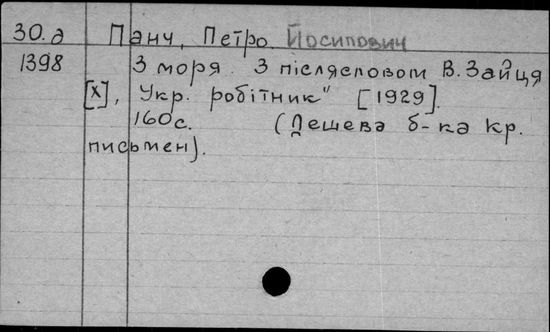 30.д Панч, Петро Йосипович
1398 З моря. З післясловом В. Зайця
[Х], Укр. робітник" [1929].
160с. (Дешева б-ка кр.
письмен).